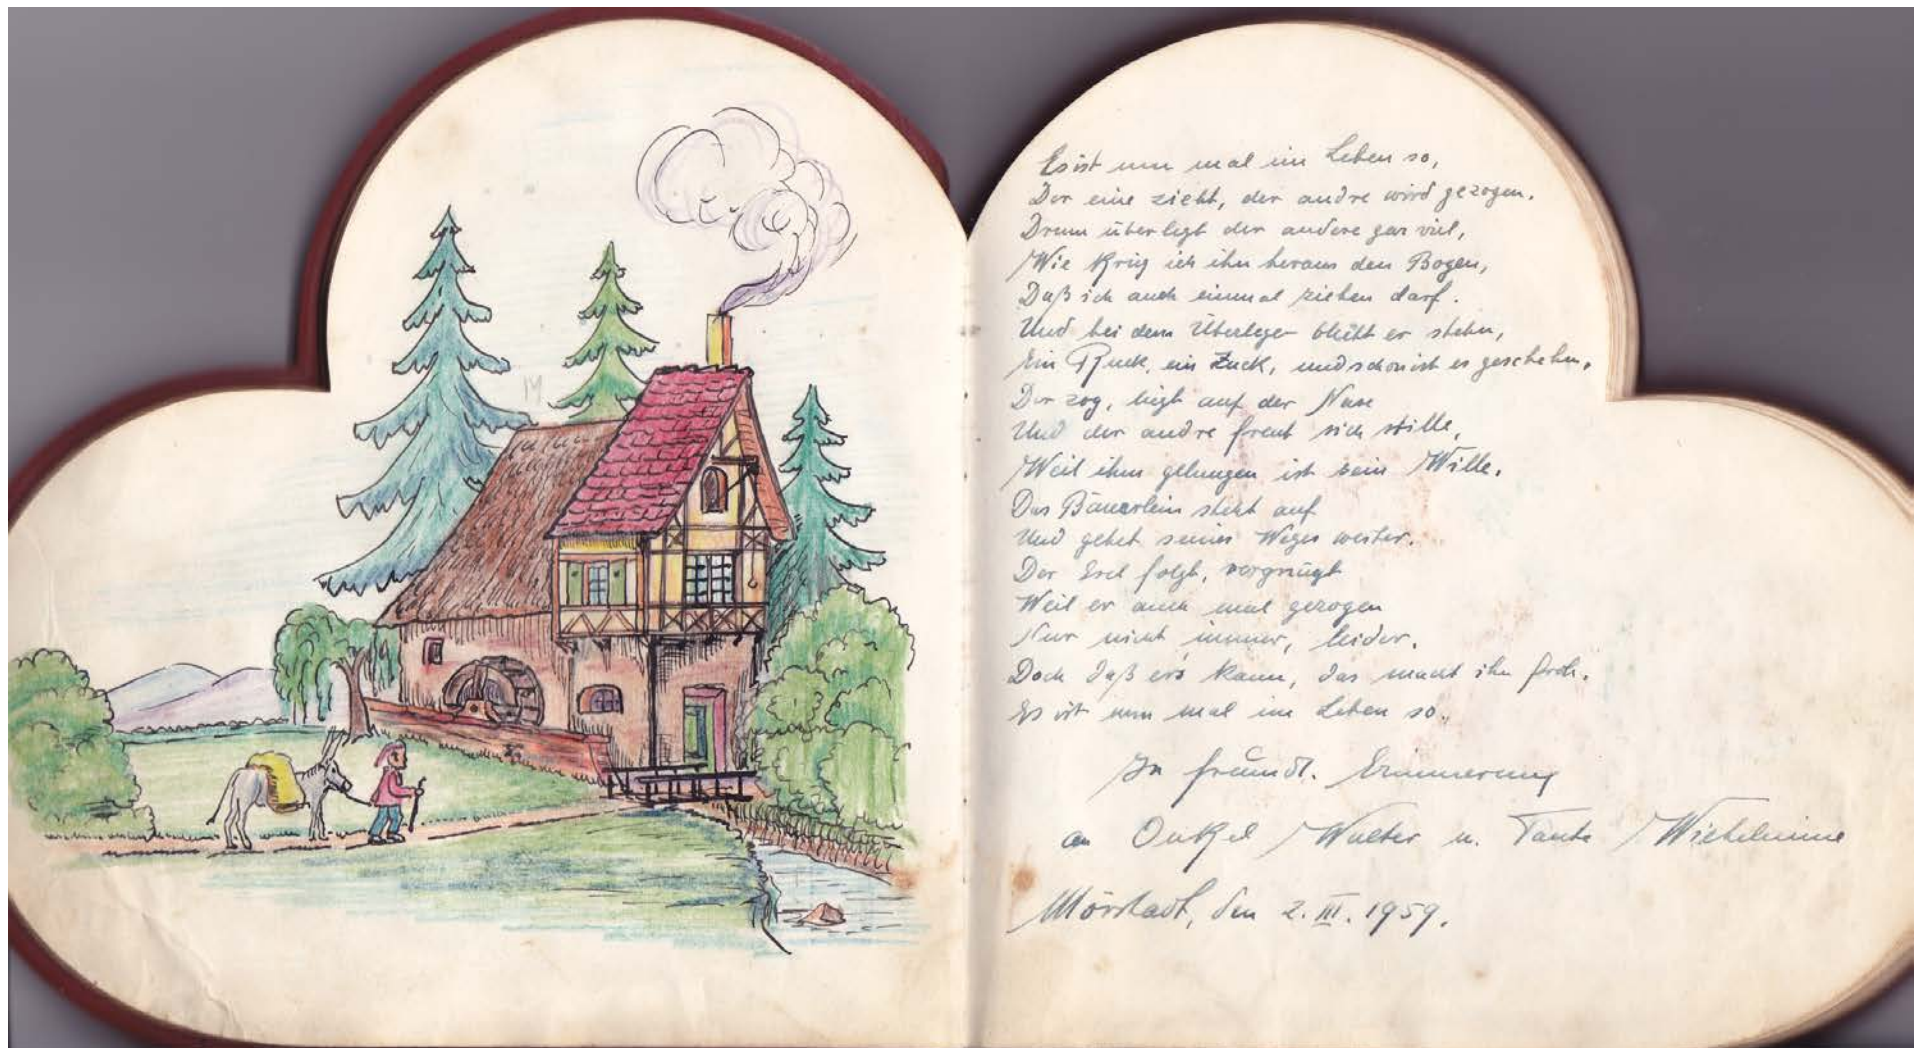 Es ist nun mal im Leben so,
Der eine zieht, der andre wird gezogen.
Drum überlegt der andere gar viel,
Wie krieg ich ihn heraus den Bogen,
Daß ich auch einmal ziehen darf.
Und bei dem Überlegen bleibt er stehn,
Ein Ruck, ein Zuck, und schon ist es geschehen.
Der zog, liegt auf der Nase
Und der andre freut sich stille,
Weil ihm gelungen ist sein Wille.
Das Bäuerlein steht auf
Und gehet seines Weges weiter.
Der Esel folgt, vergnügt
Weil er auch mal gezogen
Nur nicht immer, leider.
Doch daß er's kann, das macht ihn froh.
Es ist nun mal im Leben so.
In freundl. Erinnerung
an Onkel Walter u. Tante Wilhelmine
Mörstadt, den 2. III. 1959.